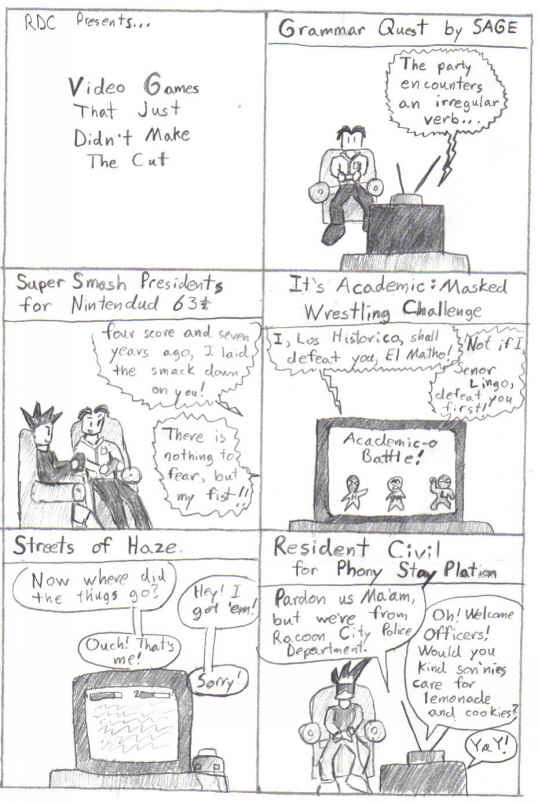 RDC Presents...
Video Games
That Just
Didn't Make
The Cut
Grammar Quest by SAGE
The party
encounters
an irregular
verb...
Super Smash Presidents
for Nintendud 63½
four score and seven
years ago, I laid
the smack down
on you!
There is
nothing to
fear, but
my fist!!
It's Academic: Masked
Wrestling Challenge
I, Los Historico, shall
defeat you, El Matho!
Not if I
Senor
Lingo,
defeat you
first!
Academic-o
Battle!
Streets of Haze.
Now where did
the thugs go?
Hey! I
got 'em!
Ouch! That's
me!
Sorry!
Resident Civil
for Phony Stay Plation
Pardon us Ma'am,
but we're from
Racoon City Police
Department.
Oh! Welcome
Officers!
Would you
kind son'nies
care for
lemonade
and cookies?
YaY!